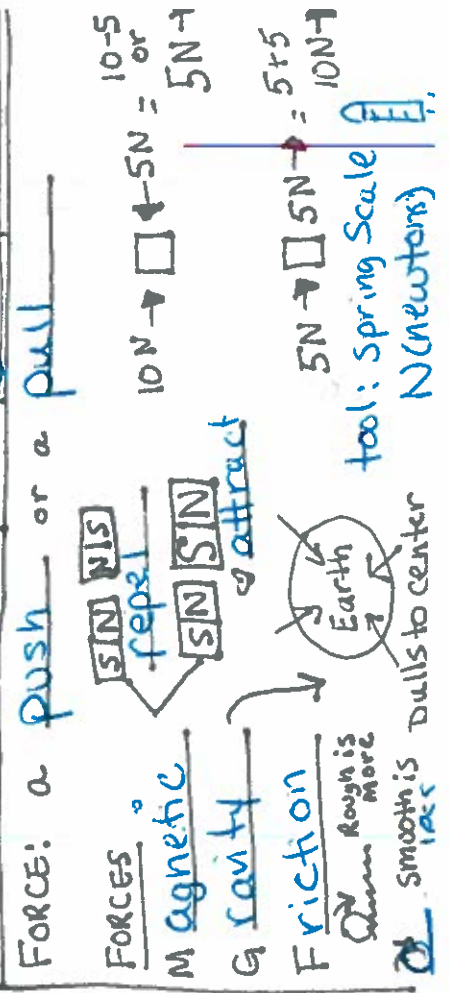 FORCE: a push or a pull
FORCES
Magnetic
S N N S
repel
S N S N
attract
Gravity
Earth
Pulls to center
Friction
Rough is
more
Smooth is
less
10N → □ ← 5N = 10-5
or
5N →
5N → □ 5N → = 5+5
10N →
tool: Spring Scale
N(newtons)